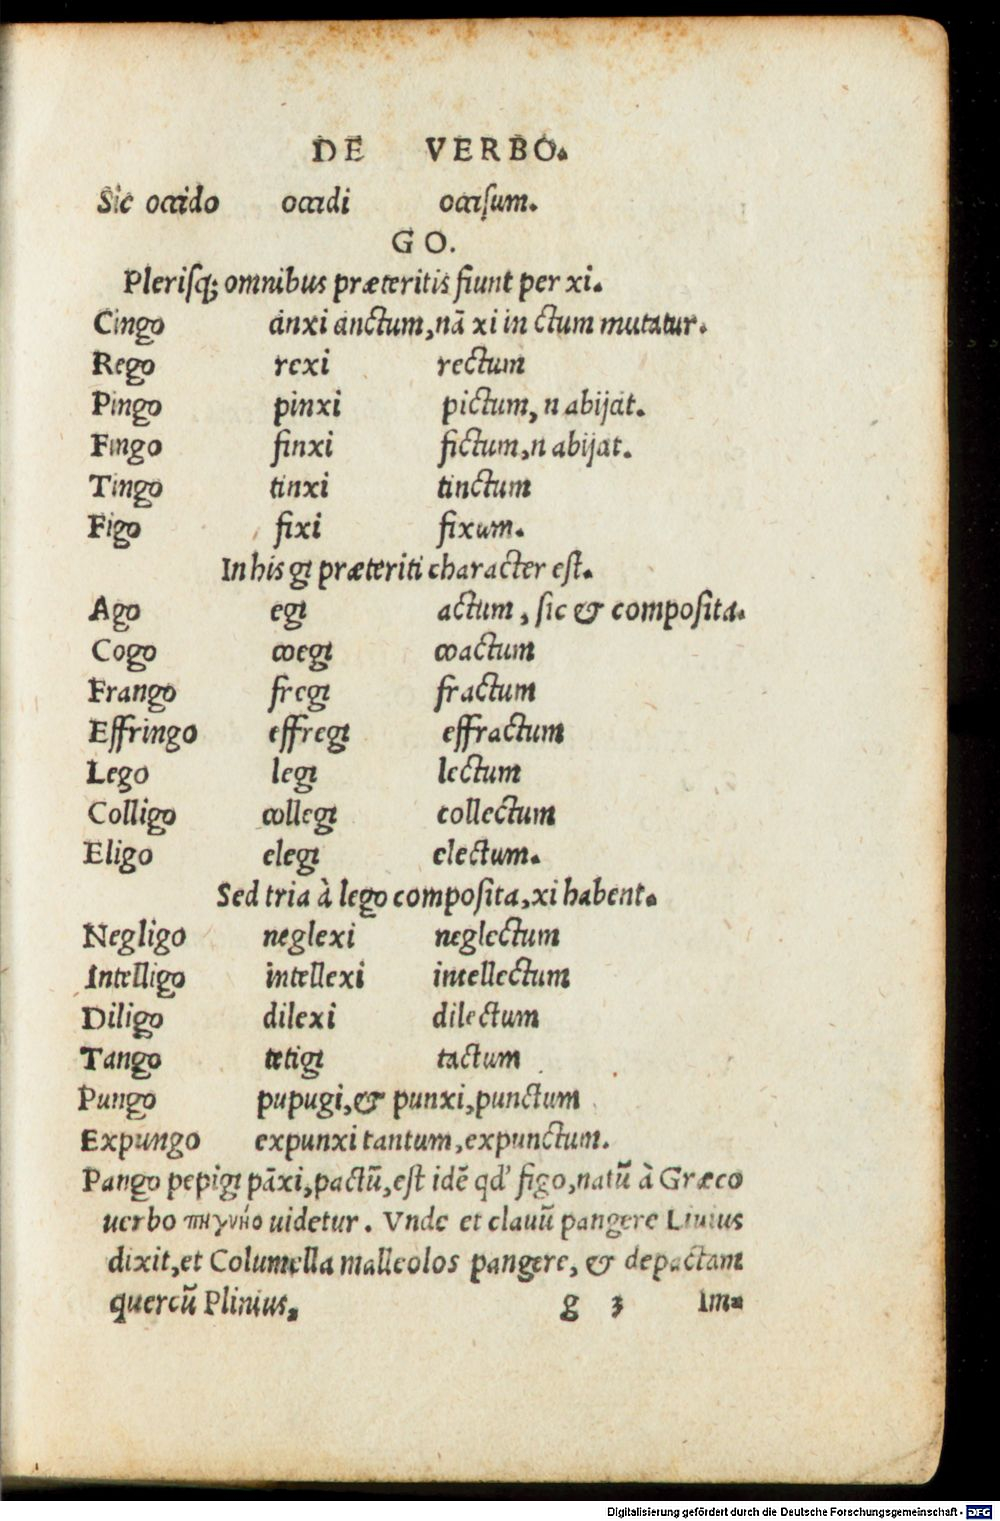 DE VERBO.
Sic occido occidi occisum.
GO.
Plerisq; omnibus præteritis fiunt per xi.
Cingo cinxi cinctum, nā xi in ctum mutatur.
Rego rexi rectum
Pingo pinxi pictum, n abijcit.
Fingo finxi fictum, n abijat.
Tingo tinxi tinctum
Figo fixi fixum.
In his gi præteriti character est.
Ago egi actum, sic & composita.
Cogo coegi coactum
Frango fregi fractum
Effringo effregi effractum
Lego legi lectum
Colligo collegi collectum
Eligo elegi electum.
Sed tria à lego composita, xi habent.
Negligo neglexi neglectum
Intelligo intellexi intellectum
Diligo dilexi dilectum
Tango tetigi tactum
Pungo pupugi, & punxi, punctum
Expungo expunxi tantum, expunctum.
Pango pepigi pāxi, pactū, est idē qd' figo, natū à Græco
uerbo uidetur. Vnde et clauū pangere Liuius
dixit, et Columella malleolos pangere, & depactam
quercū Plinius. g 3 Im-
Digitalisierung gefördert durch die Deutsche Forschungsgemeinschaft - DFG